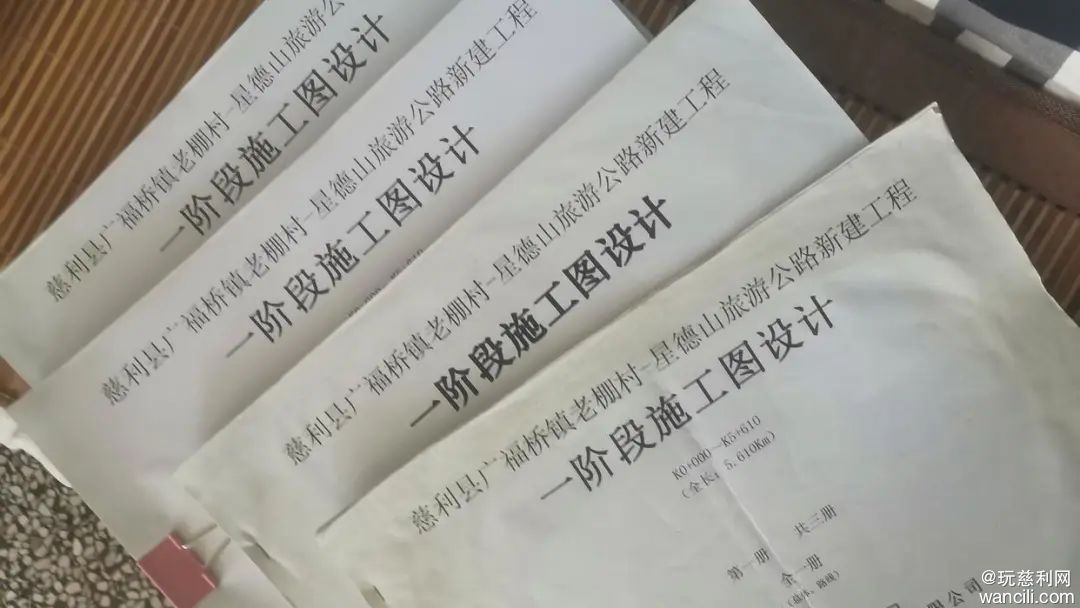 慈利县广福桥镇老棚村-星德山旅游公
一阶段施工图设计
慈利县广福桥镇老棚村-星德山旅游公路新建工程
一阶段施工图设计
慈利县广福桥镇老棚村-星德山旅游公路新建工程
一阶段施工图设计
慈利县广福桥镇老棚村-星德山旅游公路新建工程
一阶段施工图设计
K0+000—K5+610
(全长: 5.610Km)
第一册 共三册
全一册
限公司
@玩慈利网
wancili.com